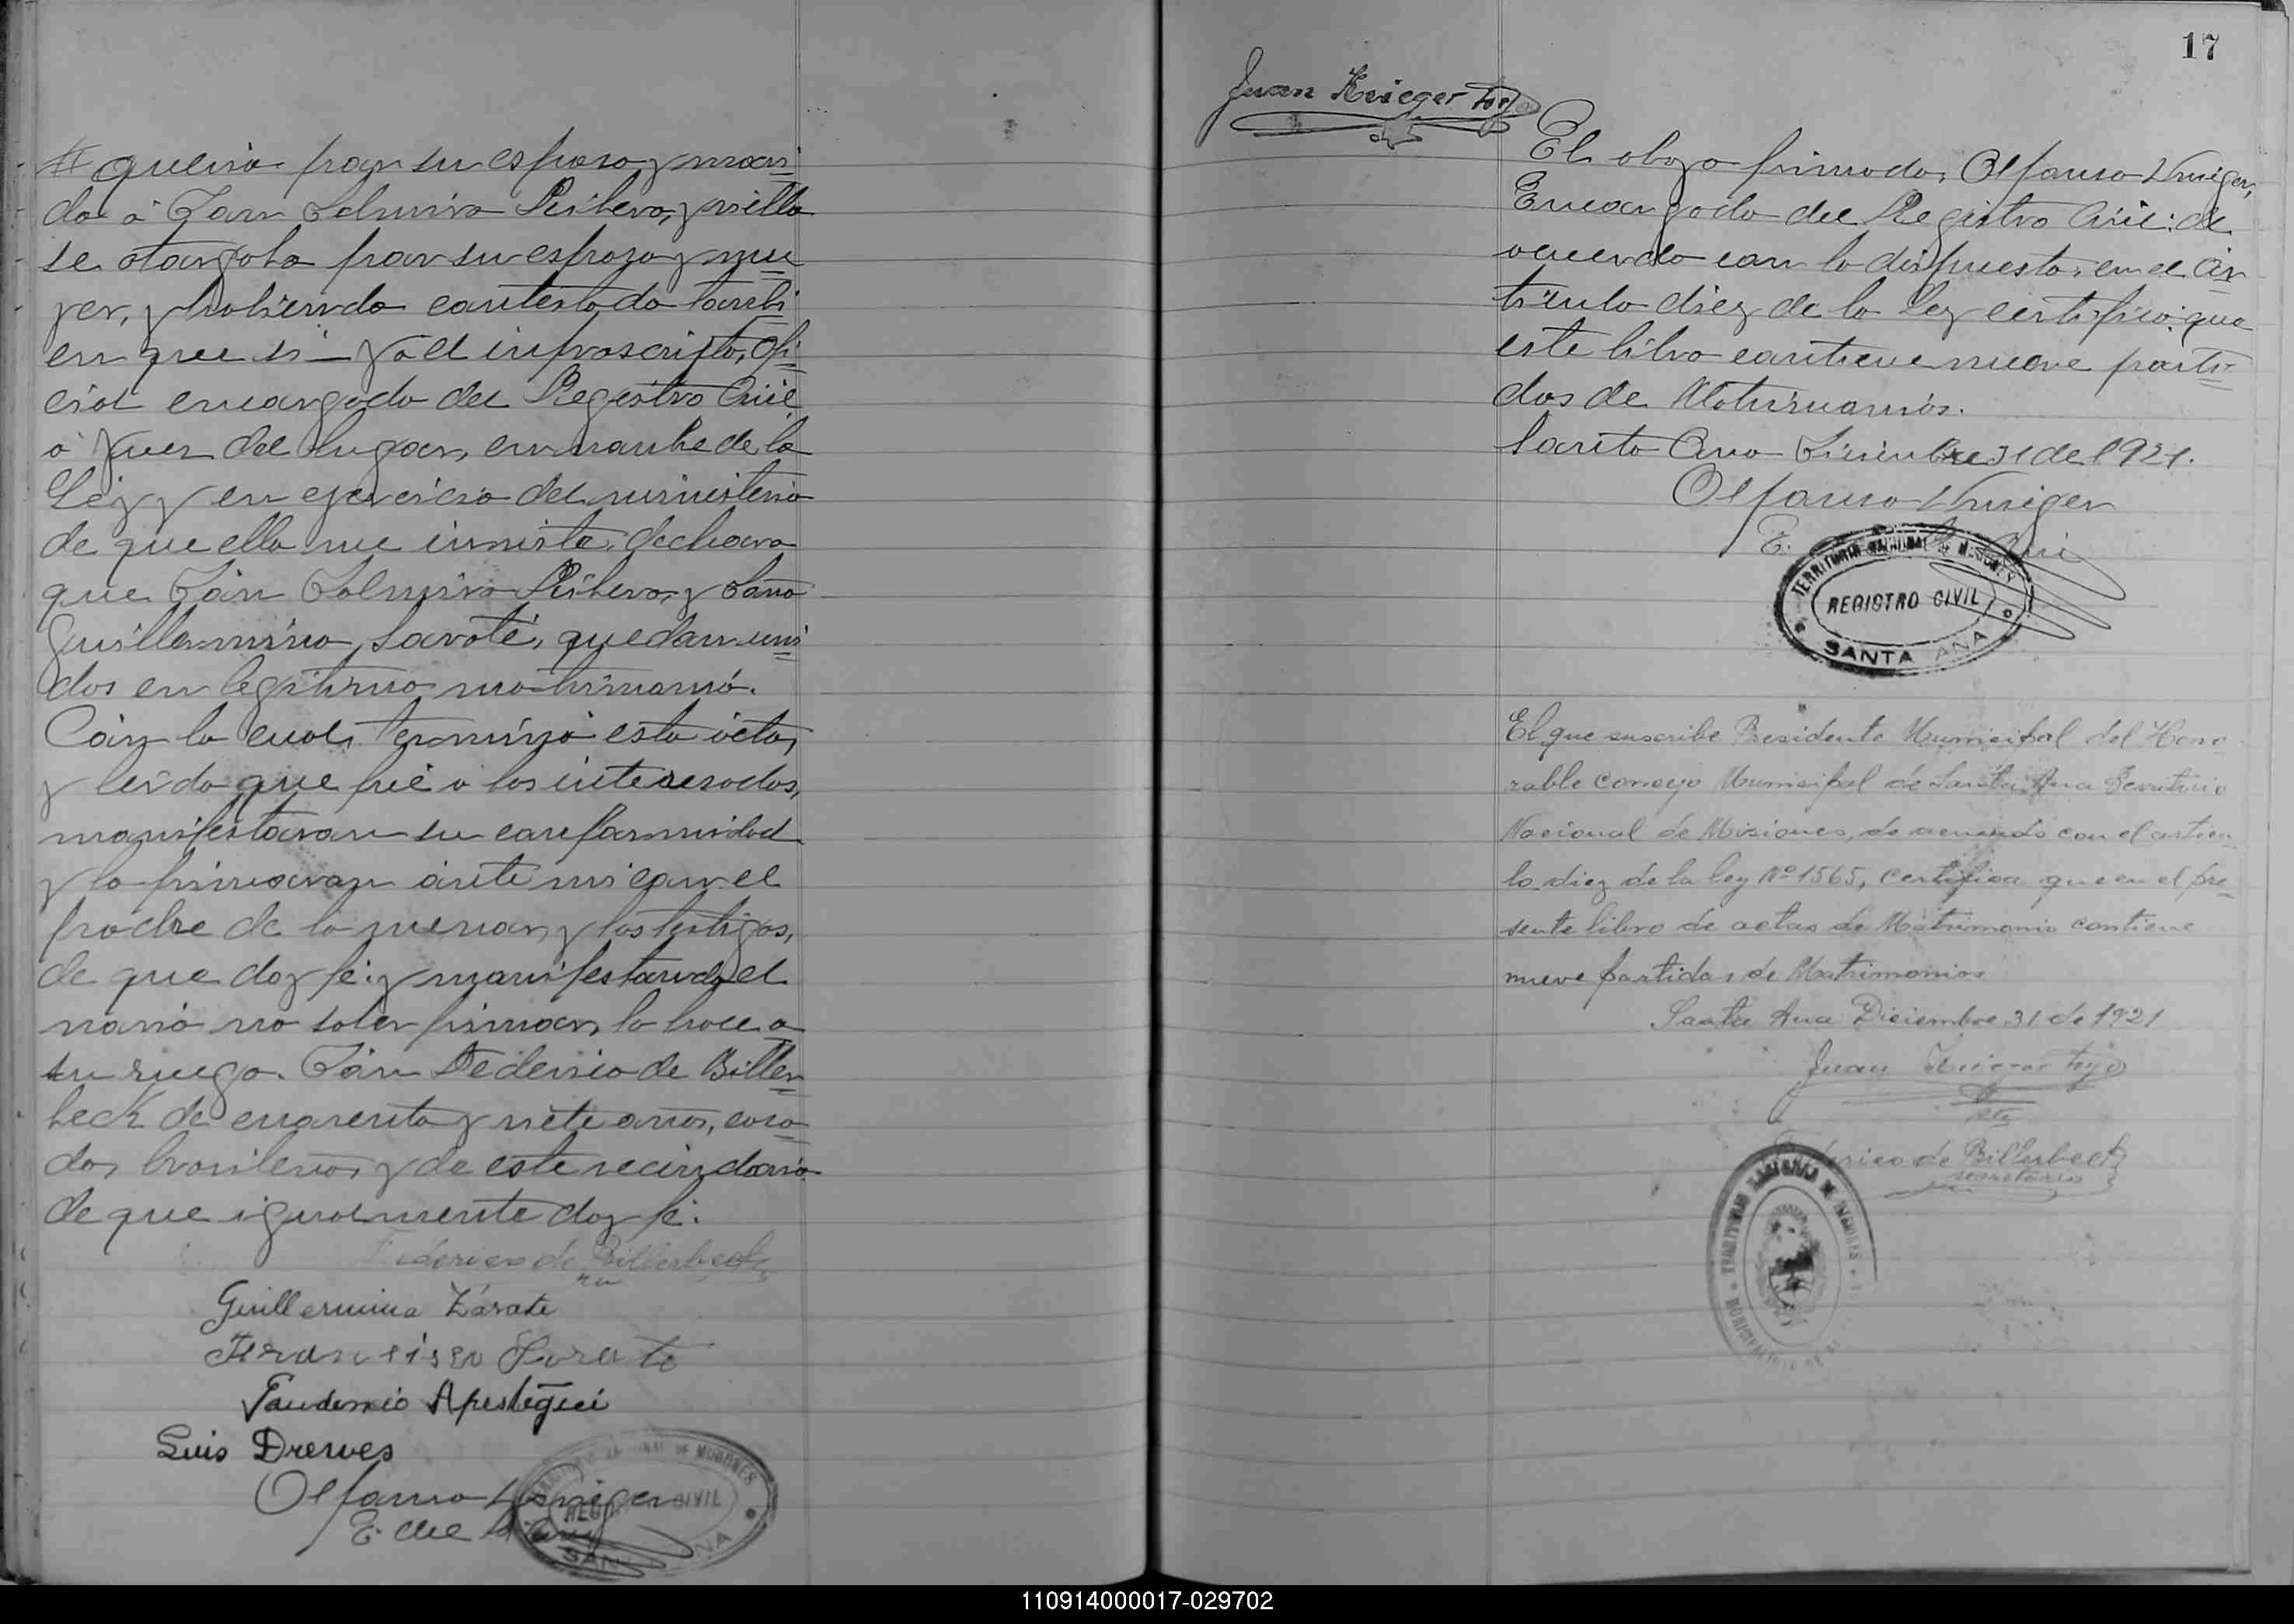 quería por su esposo y mari
do á Don Delmiro Ribero, y si ella
se otorgaba por su esposa y mu
jer, y habiendo contestado tambi
en que si — Yo el infrascripto, ofi
cial encargado del Registro Civil
ó Juez del lugar, en nombre de la
Ley y en ejercicio del ministerio
de que ella me inviste, declaro
que Don Delmiro Ribero, y Doña
Guillermina Sarate, quedan uni
dos en legitimo matrimonio.
Con lo cual, terminó esta acta,
y leida que fué a los interesados,
manifestaron su conformidad
y la firmaron ante mi con el
padre de la menor, y los testigos,
de que doy fé: y manifestando el
novio no saber firmar, lo hace a
su ruego. Don Federico de Biller
beck de cuarenta y siete años, casa
do, brasilero, y de este vecindario
de que igualmente doy fé.
Federico de Billerbeck
Guillermina Zárate
Francisco Sarate
Apestegui
Luis Drewes
Alfonso
E. del R. Civil
TERRITORIO NACIONAL DE MISIONES
REGISTRO CIVIL
SANTA ANA
17
Juan Krieger hijo
El abajo firmado, Alfonso
Encargado del Registro Civil: de
acuerdo con lo dispuesto, en el Ar
ticulo diez de la Ley certifico: que
este libro contiene nueve parti
das de Matrimonios.
Santa Ana Diciembre 31 de 1921.
Alfonso
E.
TERRITORIO NACIONAL DE MISIONES
REGISTRO CIVIL
SANTA ANA
El que suscribe Presidente Municipal del Hono
rable Consejo Municipal de Santa Ana Territorio
Nacional de Misiones, de acuerdo con el articu
lo diez de la ley Nº 1565, Certifica que en el pre
sente libro de actas de Matrimonio contiene
nueve partidas de Matrimonios
Santa Ana Diciembre 31 de 1921
Juan Krieger hijo
Pte
Federico de Billerbeck
secretario
TERRITORIO NACIONAL DE MISIONES
110914000017-029702